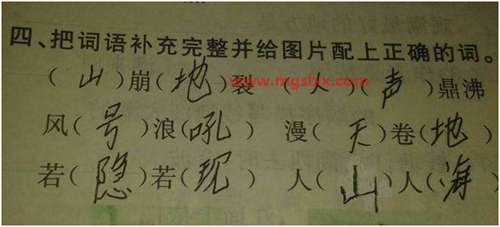 四、把词语补充完整并给图片配上正确的词。
(山)崩(地)裂 (人)(声)鼎沸
www.mgshx.com
风(号)浪(吼) 漫(天)卷(地)
若(隐)若(现) 人(山)人(海)